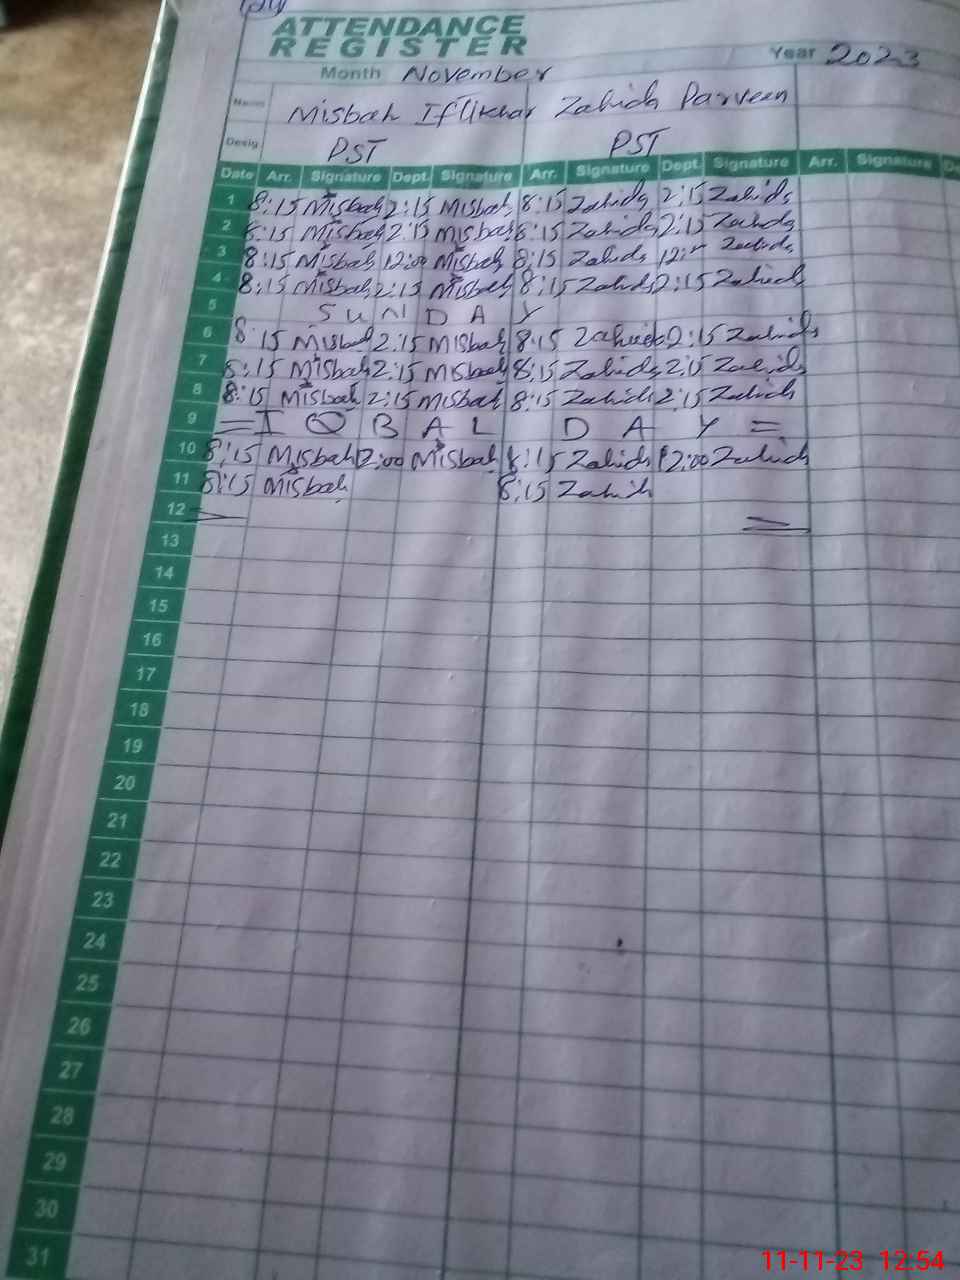 ATTENDANCE
REGISTER
Year 2023
Month November
Name Misbah Iftikhar Zahida Parveen
Desig. PST PST
Date Arr. Signature Dept. Signature Arr. Signature Dept. Signature Arr. Signature
1 8:15 Misbah 2:15 Misbah 8:15 Zahida 2:15 Zahida
2 8:15 Misbah 2:15 Misbah 8:15 Zahida 2:15 Zahida
3 8:15 Misbah 12:00 Misbah 8:15 Zahida Zahida
4 8:15 Misbah 2:15 Misbah 8:15 Zahida 2:15 Zahida
5 SUNDAY
6 8:15 Misbah 2:15 Misbah 8:15 Zahida 2:15 Zahida
7 8:15 Misbah 2:15 Misbah 8:15 Zahida 2:15 Zahida
8 8:15 Misbah 2:15 Misbah 8:15 Zahida 2:15 Zahida
9 = IQBAL DAY =
10 8:15 Misbah 12:00 Misbah 8:15 Zahida 12:00 Zahida
11 8:15 Misbah 8:15 Zahida
12
13
14
15
16
17
18
19
20
21
22
23
24
25
26
27
28
29
30
31
11-11-23 12:54